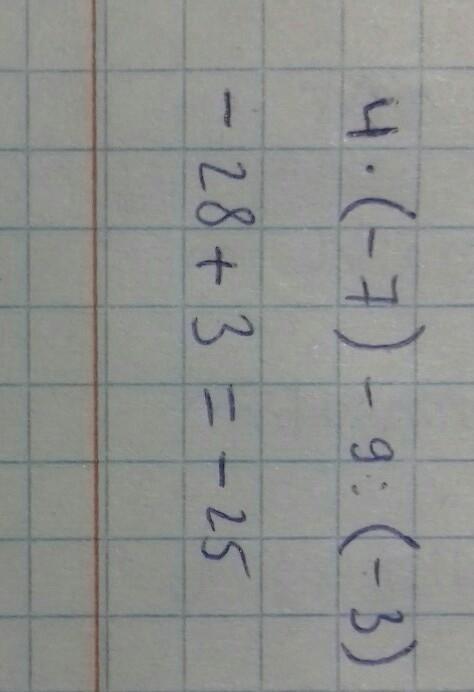 4 · (-7) - 9 : (-3)
- 28 + 3 = - 25